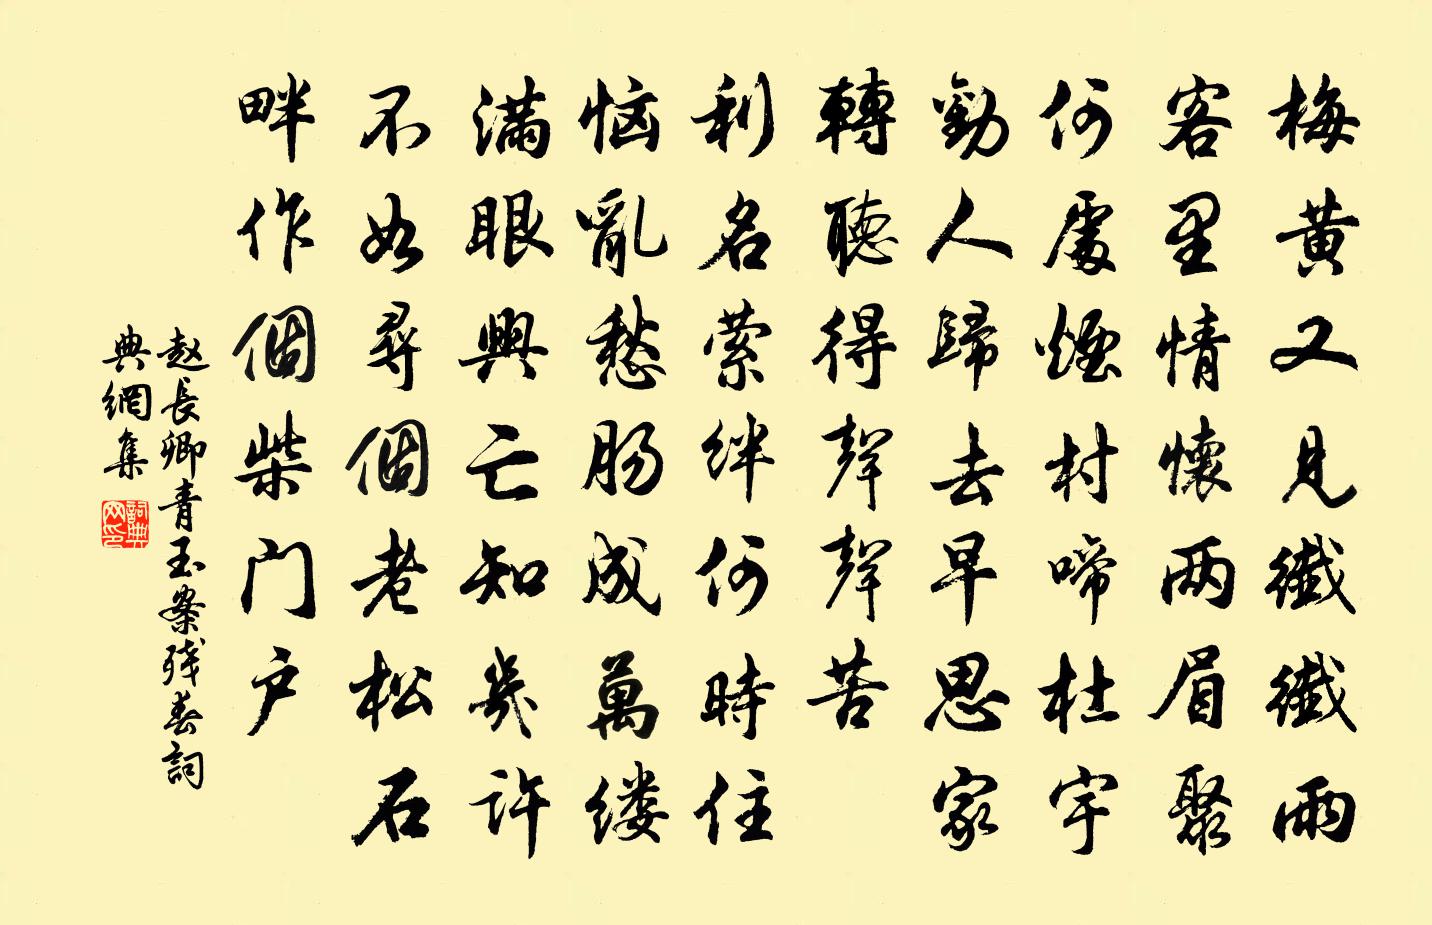 梅黄又見纖纖雨
客里情懷两眉聚
何處煙村啼杜宇
勸人歸去早思家
轉聽得聲聲苦
利名萦絆何時住
恼亂愁肠成萬缕
滿眼興亡知幾許
不如尋個老松石
畔作個柴门户
赵長卿青玉案残春詞
典網集
詞典
网印